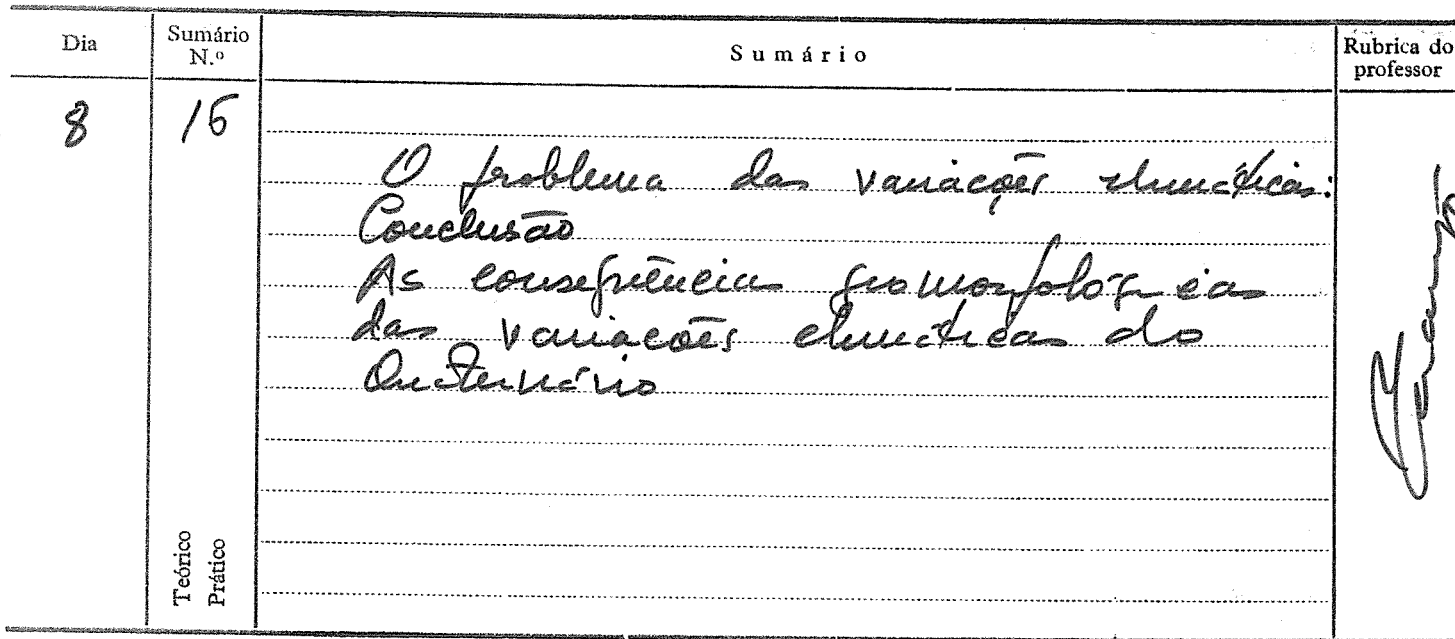 Dia
Sumário N.º
Sumário
Rubrica do professor
8
16
O problema das variações climáticas:
Conclusão
As consequências geomorfológicas
das variações climáticas do
Quaternário
Teórico
Prático